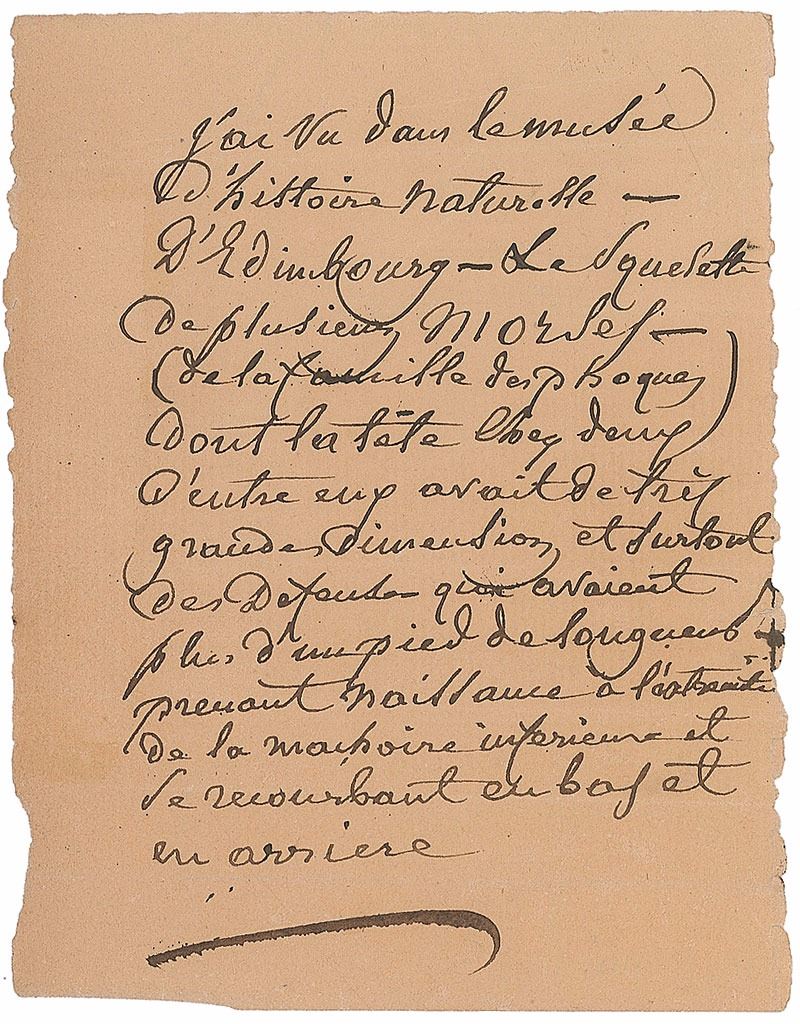 j'ai vu dans le musée
d'histoire naturelle —
D'Edimbourg — Le Squelette
de plusieurs Morses —
(de la famille des phoques)
dont la tête chez deux
d'entre eux avait de très
grandes dimensions et surtout
des Defenses qui avaient
plus d'un pied de longueur
prenant naissance à l'extremité
de la machoire inferieure et
se recourbant en bas et
en arriere